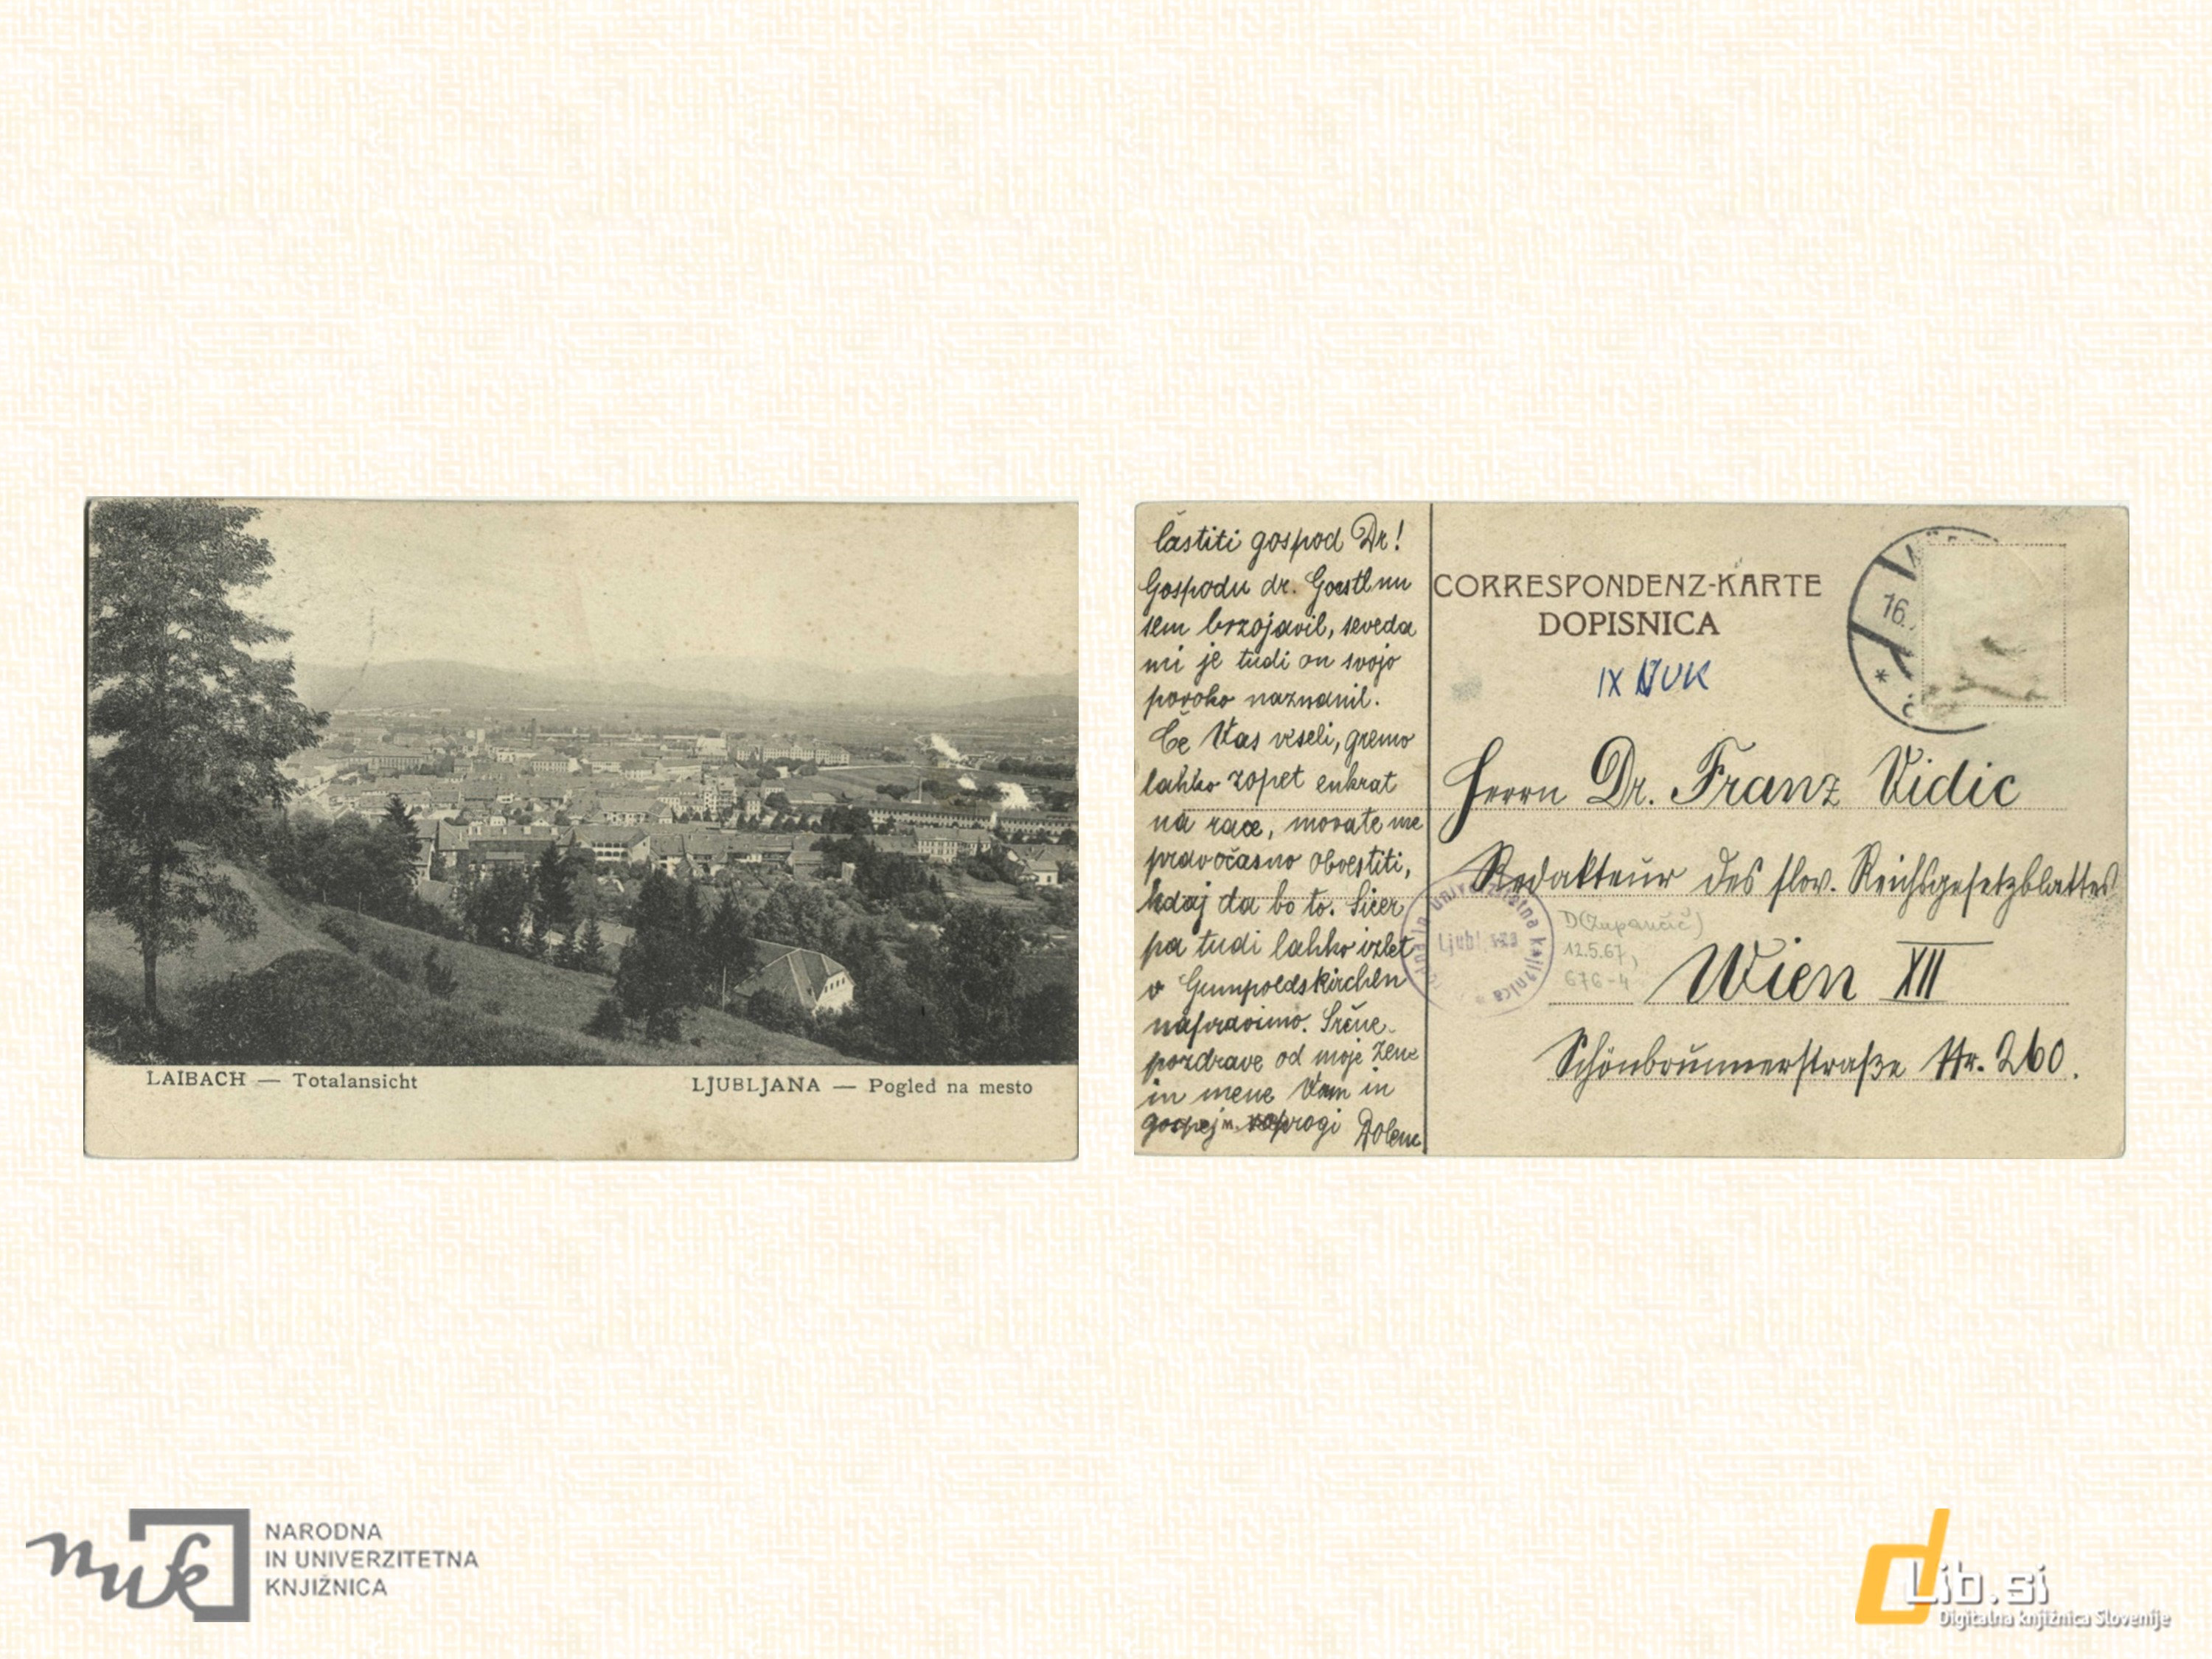 LAIBACH — Totalansicht
LJUBLJANA — Pogled na mesto
častiti gospod Dr!
Gospodu dr. Goestlnu
sem brzojavil, seveda
mi je tudi on svojo
poroko naznanil.
Če Vas veseli, gremo
lahko zopet enkrat
na race, morate me
pravočasno obvestiti,
kdaj da bo to. Sicer
pa tudi lahko izlet
v Gumpoldskirchen
napravimo. Srčne
pozdrave od moje žene
in mene Vam in
gospej soprogi Dolenc
CORRESPONDENZ-KARTE
DOPISNICA
IX NUK
16.
Herrn Dr. Franz Vidic
Redakteur des slov. Reichsgesetzblattes
D(Zupančič)
12.5.67,
676-4
Ljubljana
Wien XII
Schönbrunnerstraße Nr. 260.
nuk
NARODNA
IN UNIVERZITETNA
KNJIŽNICA
dLib.si
Digitalna knjižnica Slovenije